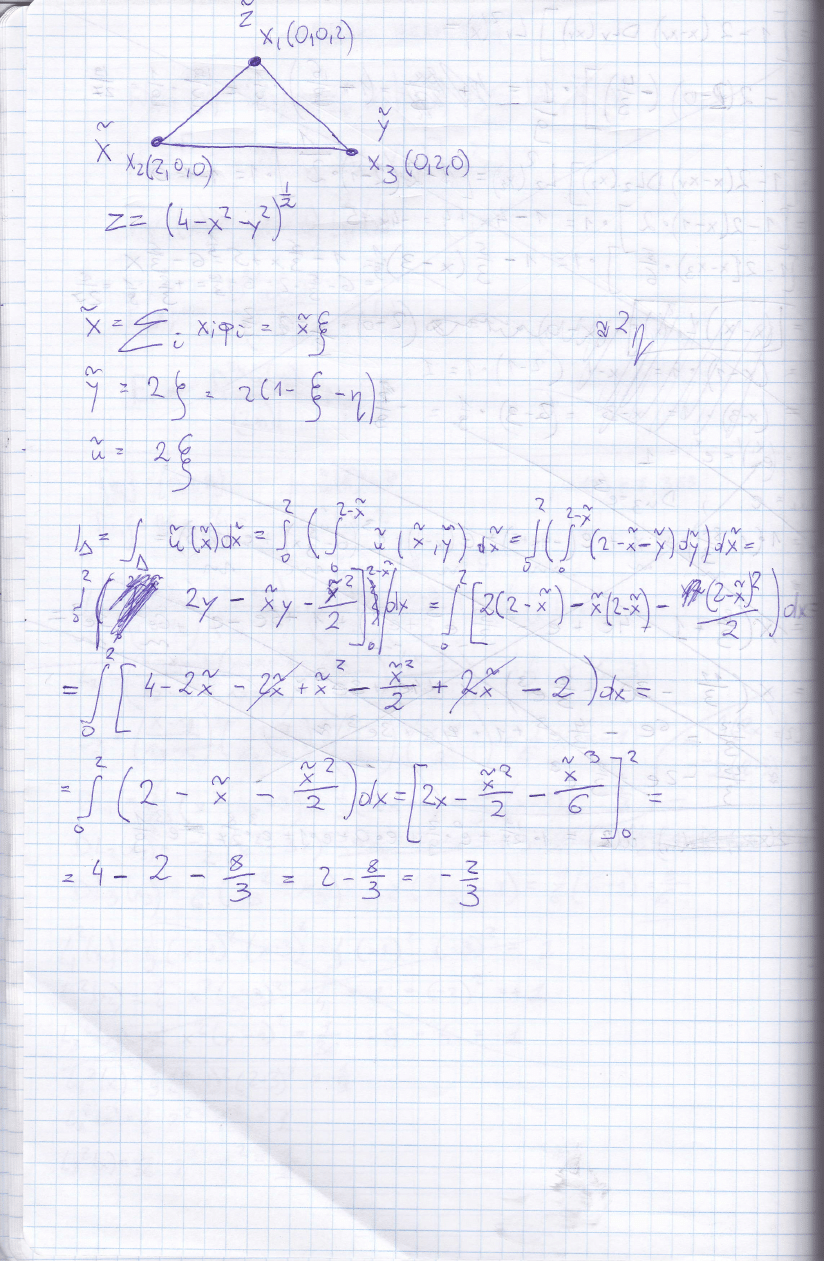 z̃
x₁(0,0,2)
ỹ
x̃ x₂(2,0,0) x₃(0,2,0)
z = (4-x²-y²)^{1/2}
x̃ = Σ_i x_i φ_i = x̃ξ ≈ 2η
ỹ = 2ζ = 2(1-ξ-η)
ũ = 2ξ
I_Δ = ∫_Δ ũ(x̃)dx̃ = ∫_0^2 (∫_0^{2-x̃} ũ(x̃,ỹ) dx̃ = ∫_0^2 (∫_0^{2-x̃} (2-x̃-ỹ)dỹ)dx̃ =
∫_0^2 ( 2y - x̃y - x̃²/2 ]_0^{2-x̃} )dx = ∫_0^2 [2(2-x̃) - x̃(2-x̃) - (2-x̃)²/2 )dx =
= ∫_0^2 [4-2x̃ - 2x̃ + x̃² - x̃²/2 + 2x̃ - 2)dx =
= ∫_0^2 (2 - x̃ - x̃²/2)dx = [2x - x̃²/2 - x̃³/6]_0^2 =
= 4 - 2 - 8/3 = 2 - 8/3 = -2/3